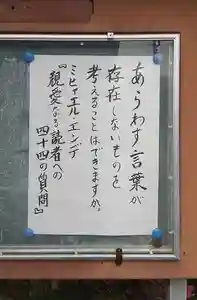 あらわす言葉が
存在しないものを
考えることはできますか。
ミヒャエル・エンデ
『親愛なる読者への
四十四の質問』